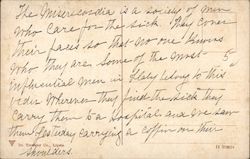 The Misericordia is a society of men
who care for the sick. They cover
their faces so that no one knows
who they are. Some of the most
influential men in Italy belong to this
order. Wherever they find the sick they
carry them to a hospital and we saw
them yesterday carrying a coffin on their
shoulders.